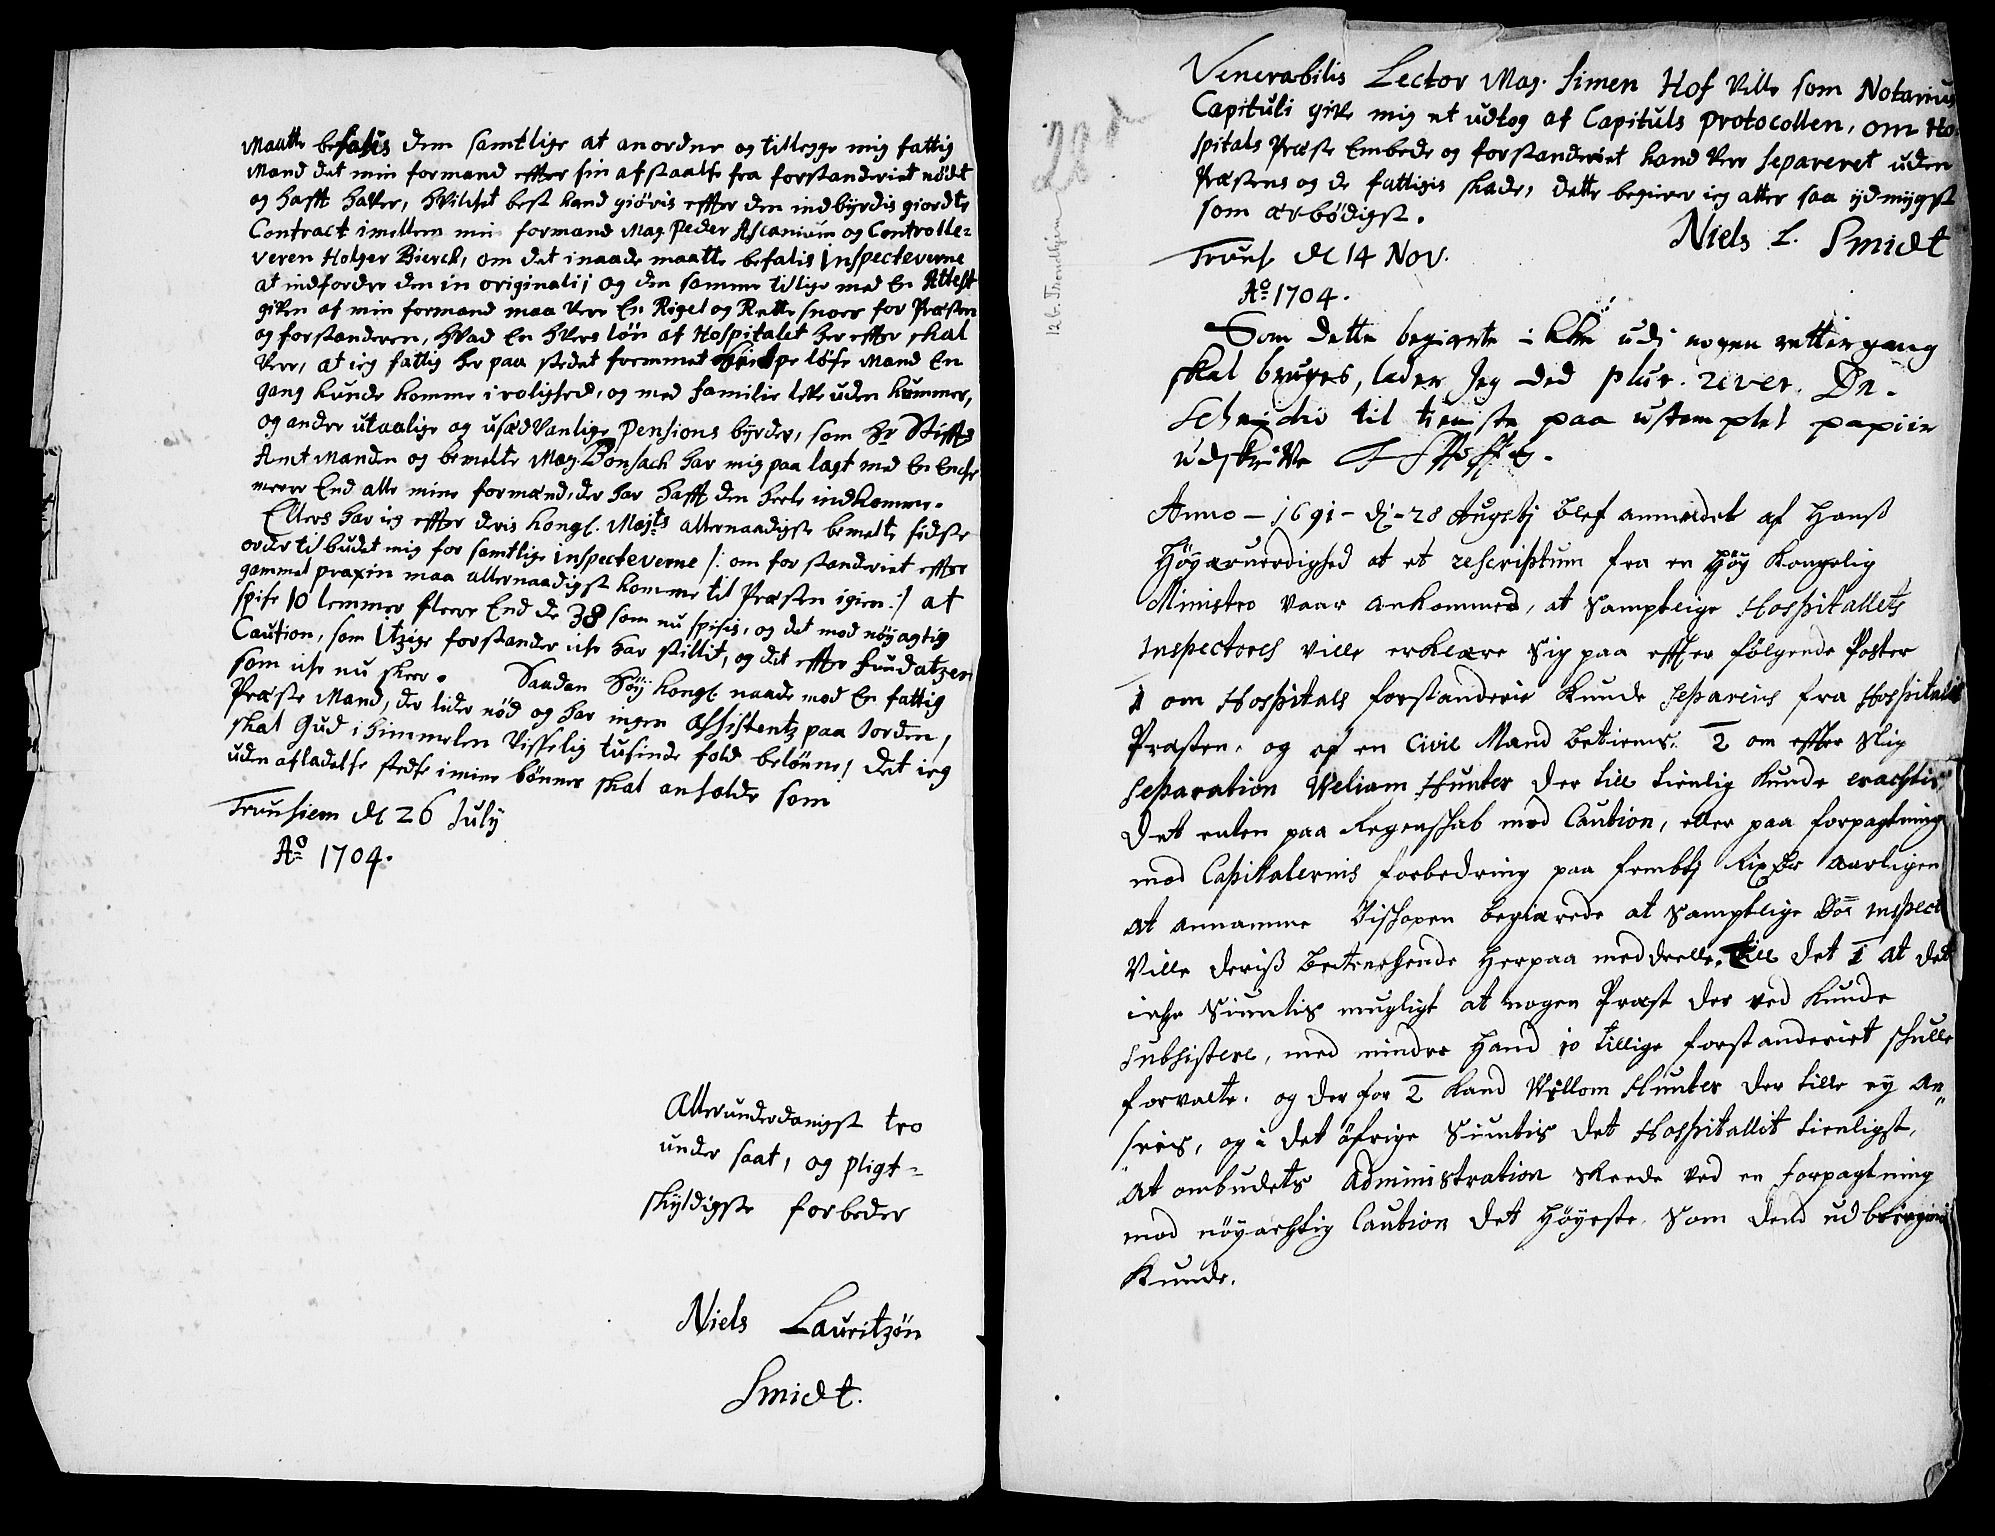 Maatte befalis dem samtlige at anordne og tillegge mig fattig
Mand det min formand effter sin afstaalse fra forstanderiet nødt
og hafft haver, hvilchet best kand giøris effter den indbyrdis giordte
Contract imellem min formand Mag. Peder Ascanium og Controlle-
veren Holger Bierck, om det i naade maatte befalis Inspecteverne
at indfordre den in originali; og den samme tillige med En Attest
given af min formand maa vere En Rigel og Rettesnoer for Præsten
og forstanderen, hvad En hvers løn af Hospitalet her effter skal
vere, at ieg fattig her paa stedet fremmet hielpeløse Mand En
gang kunde komme i rolighed, og med familie leve uden kummer,
og andre utaalige og usædvanlige Pensions byrder, som Hr Stiffts
Amt Manden og bemelte Mag. Bonsach har mig paa lagt med En Ende
meere End alle mine formænd, der har hafft den heele indkomme.
Ellers har ieg effter deris Kongl. Majts allernaadigste bemelte sidste
ordre tilbudet mig for samtlige inspecteverne /: om forstanderiet effter
gammel praxin maa allernaadigst komme til Præsten igien :/ at
spise 10 lemmer fleere End de 38 som nu spisis, og det mod nøyagtig
Caution, som itzige forstander iche har stillit, og det effter fundatzen
som iche nu skeer. Saadan Høy Kongl. naade mod En fattig
Præste Mand, der lider nød og har ingen assistentz paa Jorden,
skal Gud i himmelen visselig tusinde fold belønne, det ieg
uden afladelse stedse i mine bønner skal anholde som
Trunhiem de 26 July
Ao 1704.
Allerunderdanigst tro
under saat, og pligt-
skyldigste forbeder
Niels Lauritzøn
Smidt.
Venerabilis Lector Mag. Simen Hof ville som Notarius
Capituli give mig et udtog af Capituls protocollen, om Ho-
spitals Præste Embede og forstanderiet kand vere separeret uden
Præstens og de fattigis skade, dette begierer ieg atter saa ydmygst
som ærbødigst.
Niels L. Smidt
Trunh. de 14 Nov.
Ao 1704.
Som dette begierte icke udi nogen rettergang
skal bruges, lader Jeg ded plur. rever. Dn.
Schmidio til tieniste paa ustemplet papiir
udskrive
Anno - 1691 - dj - 28 Augstj blef anmeldet af Hanß
Høyærverdighed at et rescriptum fra en Høy Kongelig
Ministro vaar ankommed, at samptlige Hospitallets
Inspectores ville erklære sig paa effter følgende Poster
1 om Hospitals forstanderie kunde separeris fra Hospitals
Præsten, og af en Civil Mand betienis. 2 om effter slig
Separation Weliam Hunter der till tienlig kunde erachtis
det enten paa Regenskab med Caution, eller paa forpagtning
med Capitalernis forbedring paa sembtj Rixdr aarligen
at annamme Bishopen begiærede at samptlige Dnn inspect
ville deriß betenchende herpaa meddeelle. Till det 1 at det
iche siuntis mugligt at nogen Præst der ved kunde
subsistere, med mindre hand jo tillige forstanderiet skulle
forvalte. og der for 2 kand Willom Hunter der tille ey an-
seeis, og i det øfrige siuntis det Hospitallit tienligst,
at ombudets Administration skeede ved en forpagtning
mod nøyachtig Caution det høyeste som dend udbringis
kunde.
28
12 b. Trondhjem